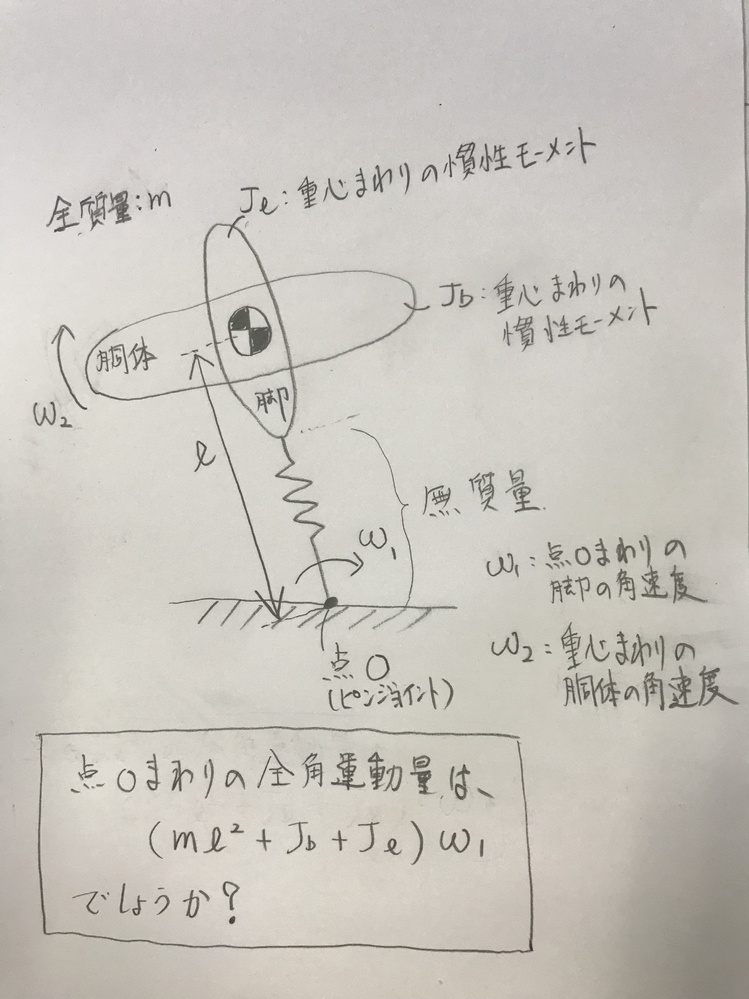 全質量:m
Jℓ:重心まわりの慣性モーメント
Jb:重心まわりの
慣性モーメント
胴体
脚
ω₂
ℓ
無質量
ω₁
ω₁:点Oまわりの
脚の角速度
ω₂:重心まわりの
胴体の角速度
点O
(ピンジョイント)
点Oまわりの全角運動量は、
(mℓ²+Jb+Jℓ)ω₁
でしょうか?